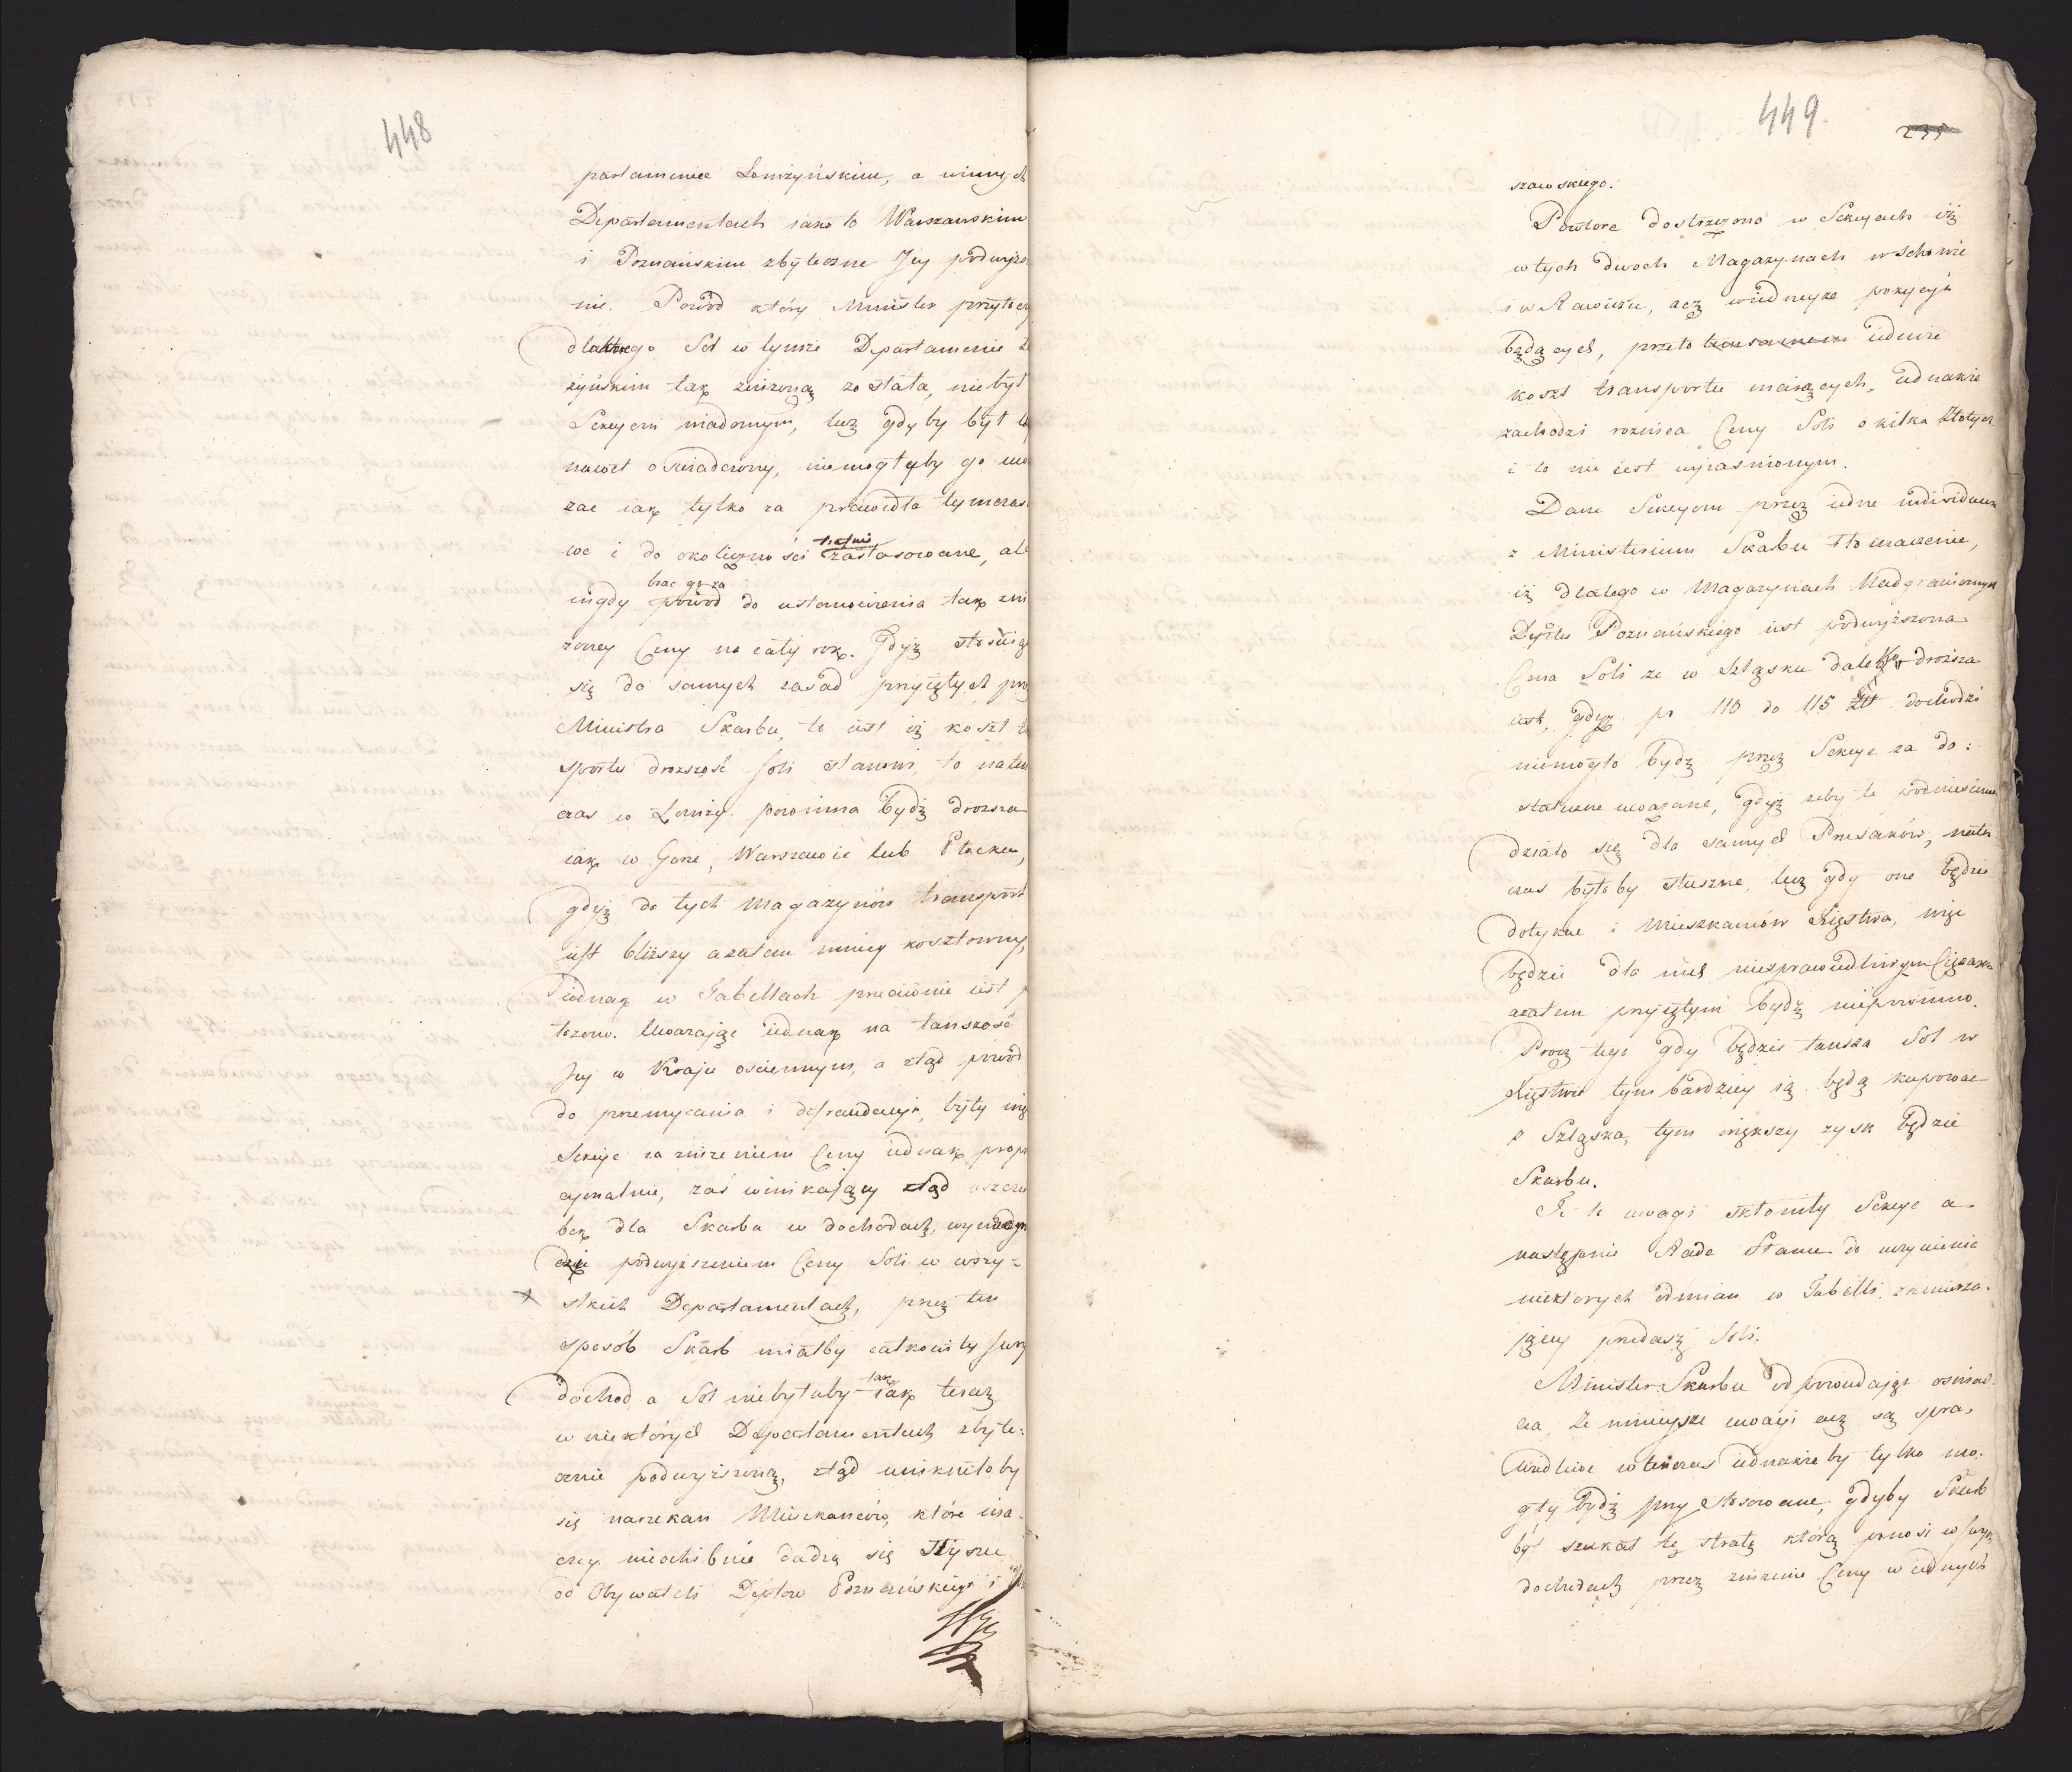 448
partamencie Łomżyńskim, a w innych
Departamentach iako to Warszawskim
i Poznańskim zbyteczne Jey podwyżs
nie. Powód który Minister przytoczy
dla którego Sol w tymże Departamencie Ło
żyńskim tak zniżoną została, nie był
Sekcyom wiadomym, lecz gdyby był
nawet oświadczony, niemogłyby go uwa
zac iak tylko za prawidła tymczaso
we i do okoliczności zastosowane, ale
brac go za
nigdy powod do ustanowienia tak zni
zoney Ceny na cały rok. Gdyż stosuią
się do samych zasad przyiętych prz
Ministra Skarbu, to iest iż koszt tr
sportu drozszość Soli stanowi, to naten
czas w Łomży powinna bydź drozsza
iak w Gorze, Warszawie lub Płocku,
gdyż do tych Magazynów transport
iest bliższy azatem mniey kosztowny,
iednak w Tabellach przeciwnie iest p
łozono. Uwazaiąc iednak na tanszość
Jey w Kraju ościennym, a ztąd powód
do przemycania i defraudacyi, były więc
Sekcye za zniżeniem Ceny iednak propor
cyonalnie, zaś wynikaiący ztąd uszczer
bek dla Skarbu w dochodach, wynadgro
dzić podwyższeniem Ceny Soli w wszy=
stkich Departamentach, przez ten
sposób Skarb miałby całkowity swoy
dochod a Sol niebyłaby tak teraz
w niektórych Departamentach zbyte=
cznie podwyższoną, ztąd uniknęłoby
się narzekan Mieszkanców, które ina
czey niechibnie dadzą się słyszec
od Obywateli Deptow Poznańskiego i
449.
235
szawskiego.
Powtore dostrzezono w Sekcyach iż
w tych dwoch Magazynach w Schowie
i w Rawiczu, acz w iedneyze pozycyi
będących, przeto iednę
koszt transportu maiących, iednakze
zachodzi roznica Ceny Soli o kilka złotych
i to nie iest wyiasnionym.
Dane Sekcyom przez iedne individuum
z Ministerium Skarbu tłomaczenie,
iż dlatego w Magazynach Nadgranicznych
Deptu Poznańskiego iest podwyższona
Cena Soli ze w Szląsku daleko drozsza
iest, gdyż po 110 do 115 Zł dochodzi
niemogło bydź przez Sekcye za do=
stateczne uwazane, gdyż zeby te podniesienie
działo się dla samych Prusaków, naten
czas byłoby słuszne, lecz gdy one będzie
dotykac i Mieszkancow Xięstwa, więc
będzie dla nich niesprawiedliwym Ciężarem
azatem przyiętym bydź niepowinno.
Procz tego gdy będzie tansza Sol w
Xięstwie tym bardziey ią będą kupowac
z Szląska, tym większy zysk będzie
Skarbu.
Te to uwagi skłoniły Sekcye a
następnie Radę Stanu do uczynienia
niektorych odmian w Tabelli zamierza=
jącey przedaż Soli.
Minister Skarbu odpowiadaiąc oswiad=
cza, że ninieysze uwagi acz są spra=
wiedliwe wtenczas iednakze by tylko mo=
gły bydź przystosowane, gdyby Skarb
był szukał tę stratę którą ponosi w swych
dochodach przez zniżenie Ceny w iednych